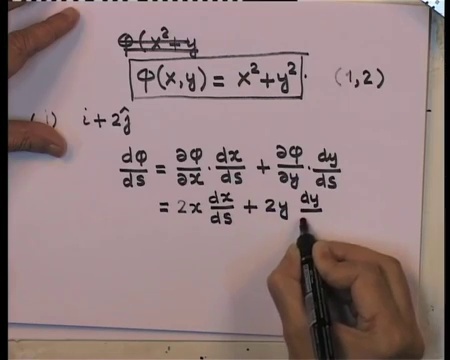 φ(x²+y
φ(x,y) = x²+y². (1,2)
i) i+2ĵ
dφ/ds = ∂φ/∂x · dx/ds + ∂φ/∂y · dy/ds
= 2x dx/ds + 2y dy